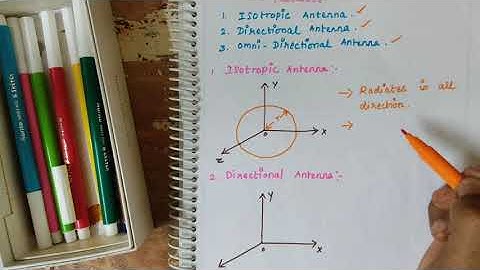 1. Isotropic Antenna. ✓
2. Directional Antenna. ✓
3. omni-Directional Antenna. ✓
1. Isotropic Antenna:-
Y
X
Z
o
r
→ Radiates in all
direction.
→
2. Directional Antenna:-
Y
X
Z
o